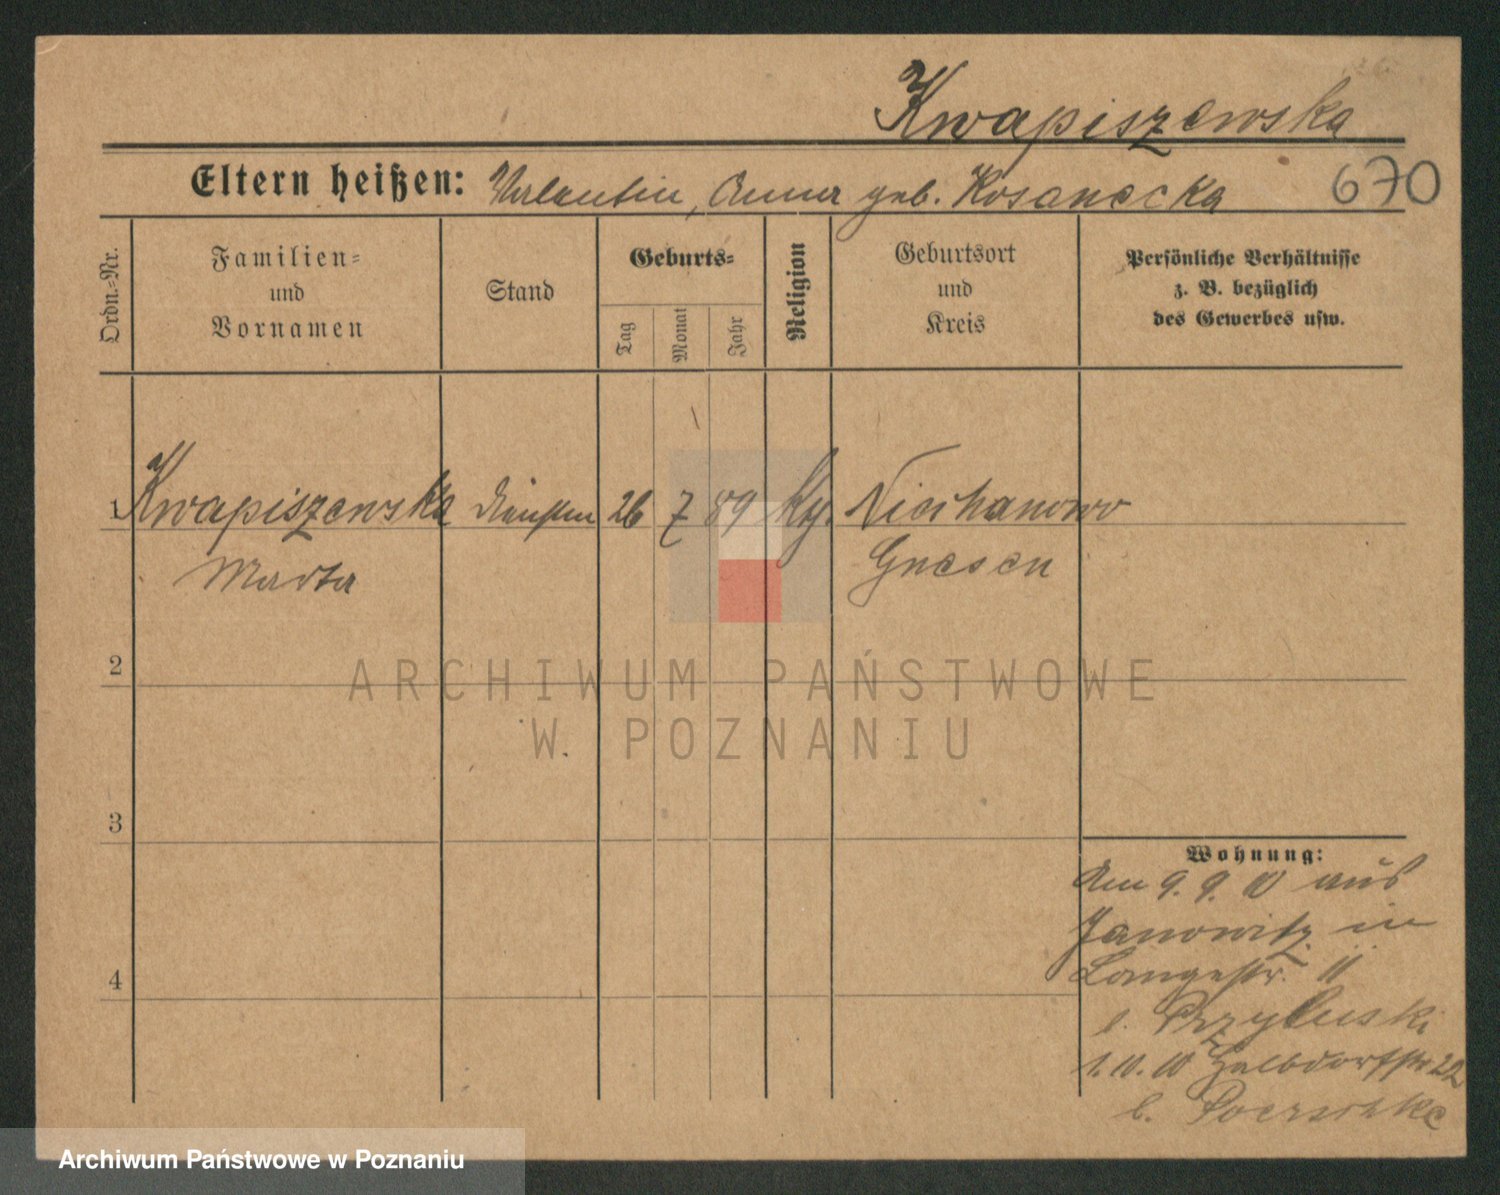 Kwapiszewska
Eltern heißen: Valentin, Anna geb. Kosanecka 670
Ordn.-Nr.
Familien-
und
Vornamen
Stand
Geburts-
Tag
Monat
Jahr
Religion
Geburtsort
und
Kreis
Persönliche Verhältnisse
z. B. bezüglich
des Gewerbes usw.
1 Kwapiszewska 26 7 89 Niechanowo
Marta Gnesen
2
3
4
Wohnung:
Am 9. 9. 10 aus
Janowitz in
Langestr. 11
b. Przyluski
1. 10. 10 Halbdorfstr 22
b.
ARCHIWUM PAŃSTWOWE
W POZNANIU
Archiwum Państwowe w Poznaniu